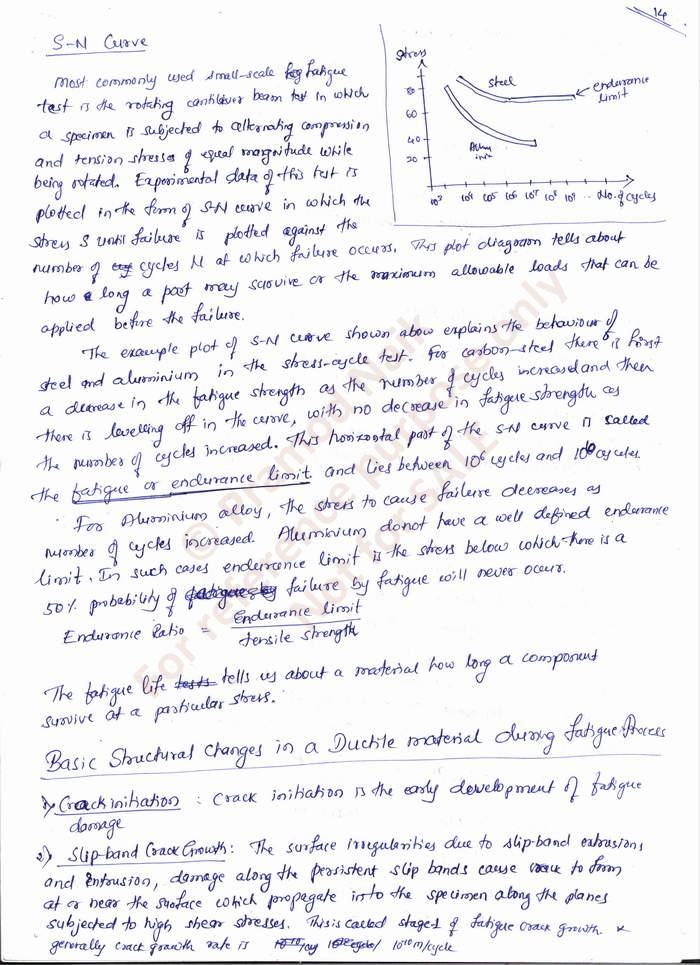 14
S-N Curve
Stress
80
60
40
20
steel
endurance
limit
Alum
inium
10³ 10⁴ 10⁵ 10⁶ 10⁷ 10⁸ 10⁹ ... No. of cycles
Most commonly used small-scale fatigue
test is the rotating cantilever beam test in which
a specimen is subjected to alternating compression
and tension stresses of equal magnitude while
being rotated. Experimental data of this test is
plotted in the form of S-N curve in which the
stress S until failure is plotted against the
number of cycles N at which failure occurs. This plot diagram tells about
how long a part may survive or the maximum allowable loads that can be
applied before the failure.
The example plot of S-N curve shown above explains the behaviour of
steel and aluminium in the stress-cycle test. For carbon-steel there is first
a decrease in the fatigue strength as the number of cycles increased and then
there is levelling off in the curve, with no decrease in fatigue strength as
the number of cycles increased. This horizontal part of the S-N curve is called
the fatigue or endurance limit. and lies between 10⁶ cycles and 10 cycles.
For Aluminium alloy, the stress to cause failure decreases as
number of cycles increased. Aluminium donot have a well defined endurance
limit. In such cases endurance limit is the stress below which there is a
50% probability of failure by fatigue will never occur.
Endurance Ratio = Endurance limit
tensile strength
The fatigue life tests tells us about a material how long a component
survive at a particular stress.
Basic Structural Changes in a Ductile material during fatigue Process
1) Crack initiation : Crack initiation is the early development of fatigue
damage
2) Slip-band Crack Growth : The surface irregularities due to slip-band extrusions
and intrusion, damage along the persistent slip bands cause crack to form
at or near the surface which propagate into the specimen along the planes
subjected to high shear stresses. This is called stage of fatigue crack growth. &
generally crack growth rate is 10¹⁰ m/cycle
© Pramod Naik
For reference purpose only
Not for SALE